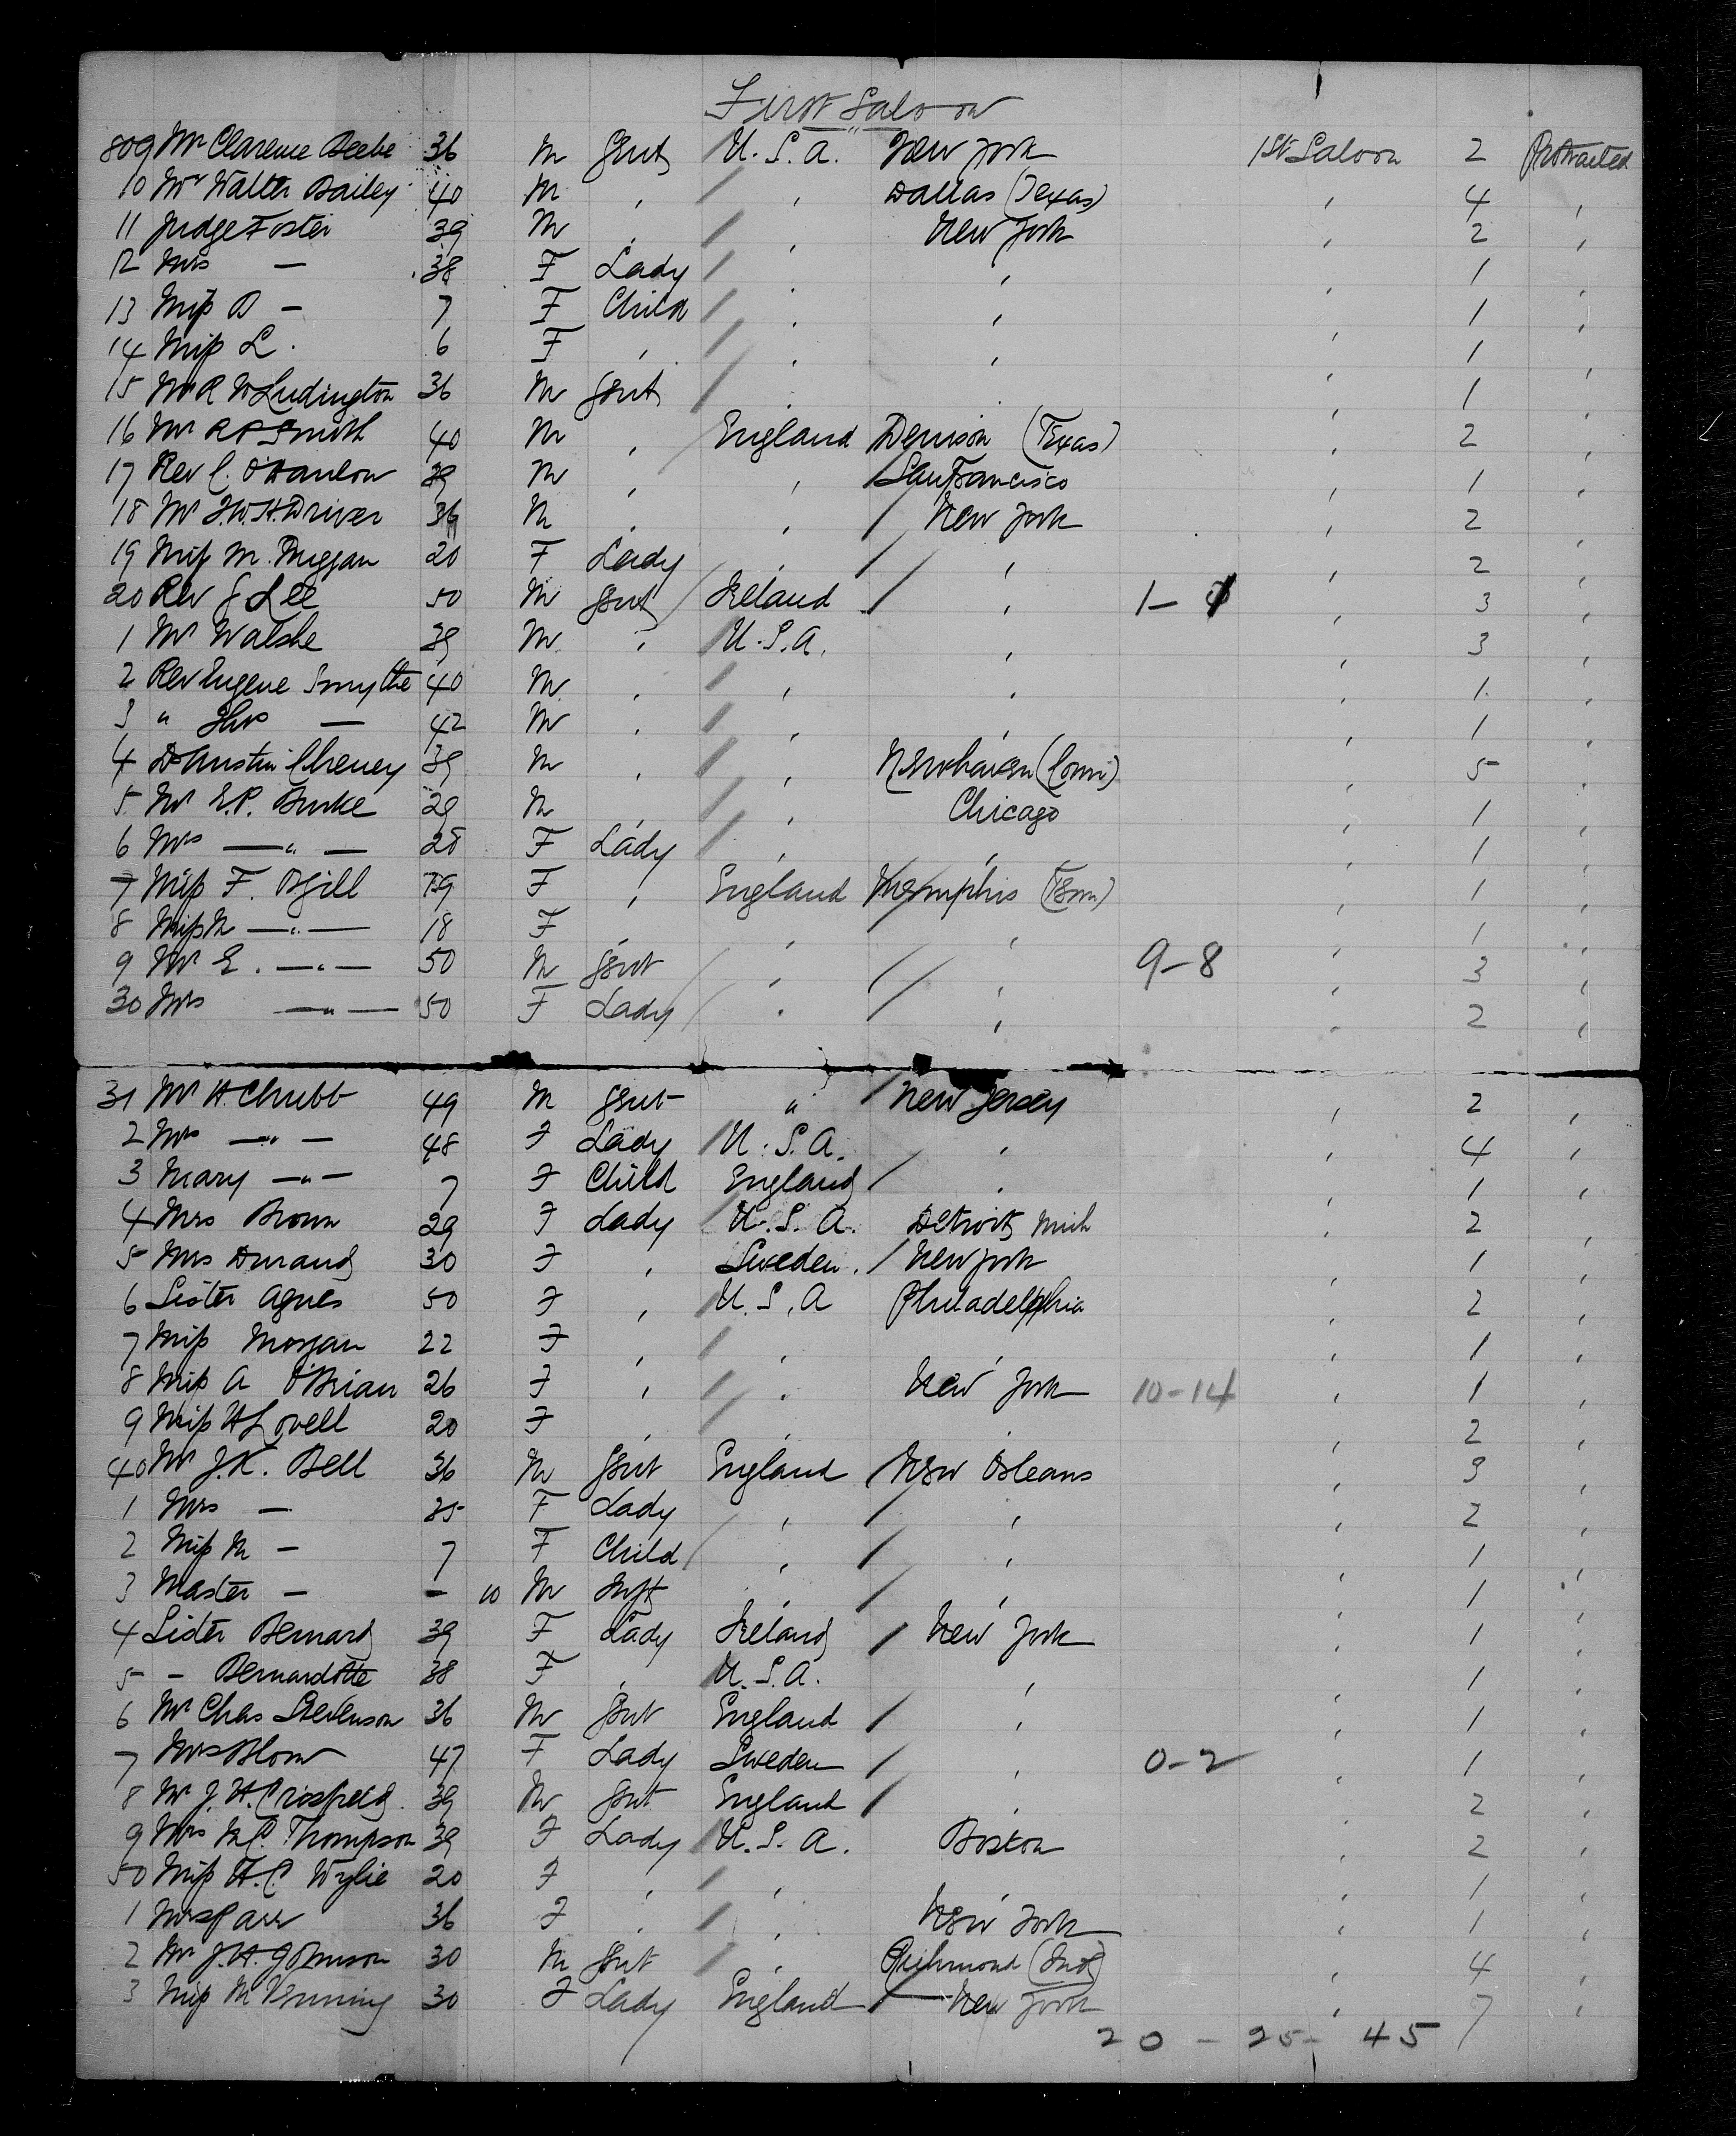 First Saloon
809 Mr Clarence Beebe 36 M Gent U.S.A. New York 1st Saloon 2 Protracted
10 Mr Walter Bailey 40 M , / , Dallas (Texas) , 4 ,
11 Judge Foster 39 M , / , New York , 2 ,
12 Mrs — 38 F Lady / , , , 1 ,
13 Miss B — 7 F Child / , , , 1 ,
14 Miss L. 6 F , / , , , 1 ,
15 Mr R W Ludington 36 M Gent / , , 1 ,
16 Mr R P Smith 40 M , England Denison (Texas) , 2 ,
17 Rev C. O'Hanlon 39 M , , / San Francisco , 1 ,
18 Mr J.W.H. Driver 36 M , , / New York , 2 ,
19 Miss M. Duggan 20 F Lady , / , , 2 ,
20 Rev J Lee 50 M Gent / Ireland / , 1- , 3 ,
1 Mr Walshe 39 M , U.S.A. , , 3 ,
2 Rev Eugene Smythe 40 M , / , , , 1 ,
3 " — 42 M , / , , , 1 ,
4 D Austin Cheney 39 M , / , Newhaven (Conn) , 5 ,
5 Mr E.P. Burke 29 M , / , Chicago , 1 ,
6 Mrs — " — 28 F Lady / , , , 1 ,
7 Miss F. Bgill F , England / Memphis (Tenn) , 1 ,
8 Miss M — " — 18 F , , , , 1 ,
9 Mr E. — " — 50 M Gent / , / , 9-8 , 3 ,
30 Mrs — " — 50 F Lady / , / , , 2 ,
31 Mr H. Chubb 49 M Gent " / New Jersey , 2 ,
2 Mrs — " — 48 F Lady / U.S.A. , , 4 ,
3 Mary — " — 7 F Child England / , , 1 ,
4 Mrs Brown 29 F Lady / U.S.A. Detroit Mich , 2 ,
5 Mrs Durand 30 F , Sweden / New York , 1 ,
6 Sister Agnes 50 F , / U.S.A Philadelphia , 2 ,
7 Miss Morgan 22 F , / , , , 1 ,
8 Miss A O'Brian 26 F , / , New York 10-14 , 1 ,
9 Miss H Lovell 20 F , / , , , 2 ,
40 Mr J.K. Bell 36 M Gent England / New Orleans , 3 ,
1 Mrs — 35 F Lady , / , , 2 ,
2 Miss M — 7 F Child / , / , , 1 ,
3 Master — - 10 M Inft , / , , 1 ,
4 Sister Bernard 39 F Lady Ireland / New York , 1 ,
5 - Bernardotte 38 F , U.S.A. , , 1 ,
6 Mr Chas Stevenson 36 M Gent England / , , 1 ,
7 Mrs Blom 47 F Lady Sweden / , 0-2 , 1 ,
8 Mr J.H. Crosfield 39 M Gent England / , , 2 ,
9 Mrs M.C. Thompson 39 F Lady U.S.A. Boston , 2 ,
50 Miss H.C. Wylie 20 F , / , , , 1 ,
1 Mrs 36 F , / , New York , 1 ,
2 Mr J.H. Johnson 30 M Gent / , Richmond (Ind) , 4 ,
3 Miss M 30 F Lady England / New York , 7 ,
20 - 25 - 45